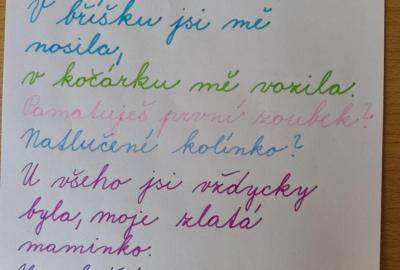 V bříšku jsi mě
nosila,
v kočárku mě vozila.
Pamatuješ první zoubek?
Natlučené kolínko?
U všeho jsi vždycky
byla, moje zlatá
maminko.